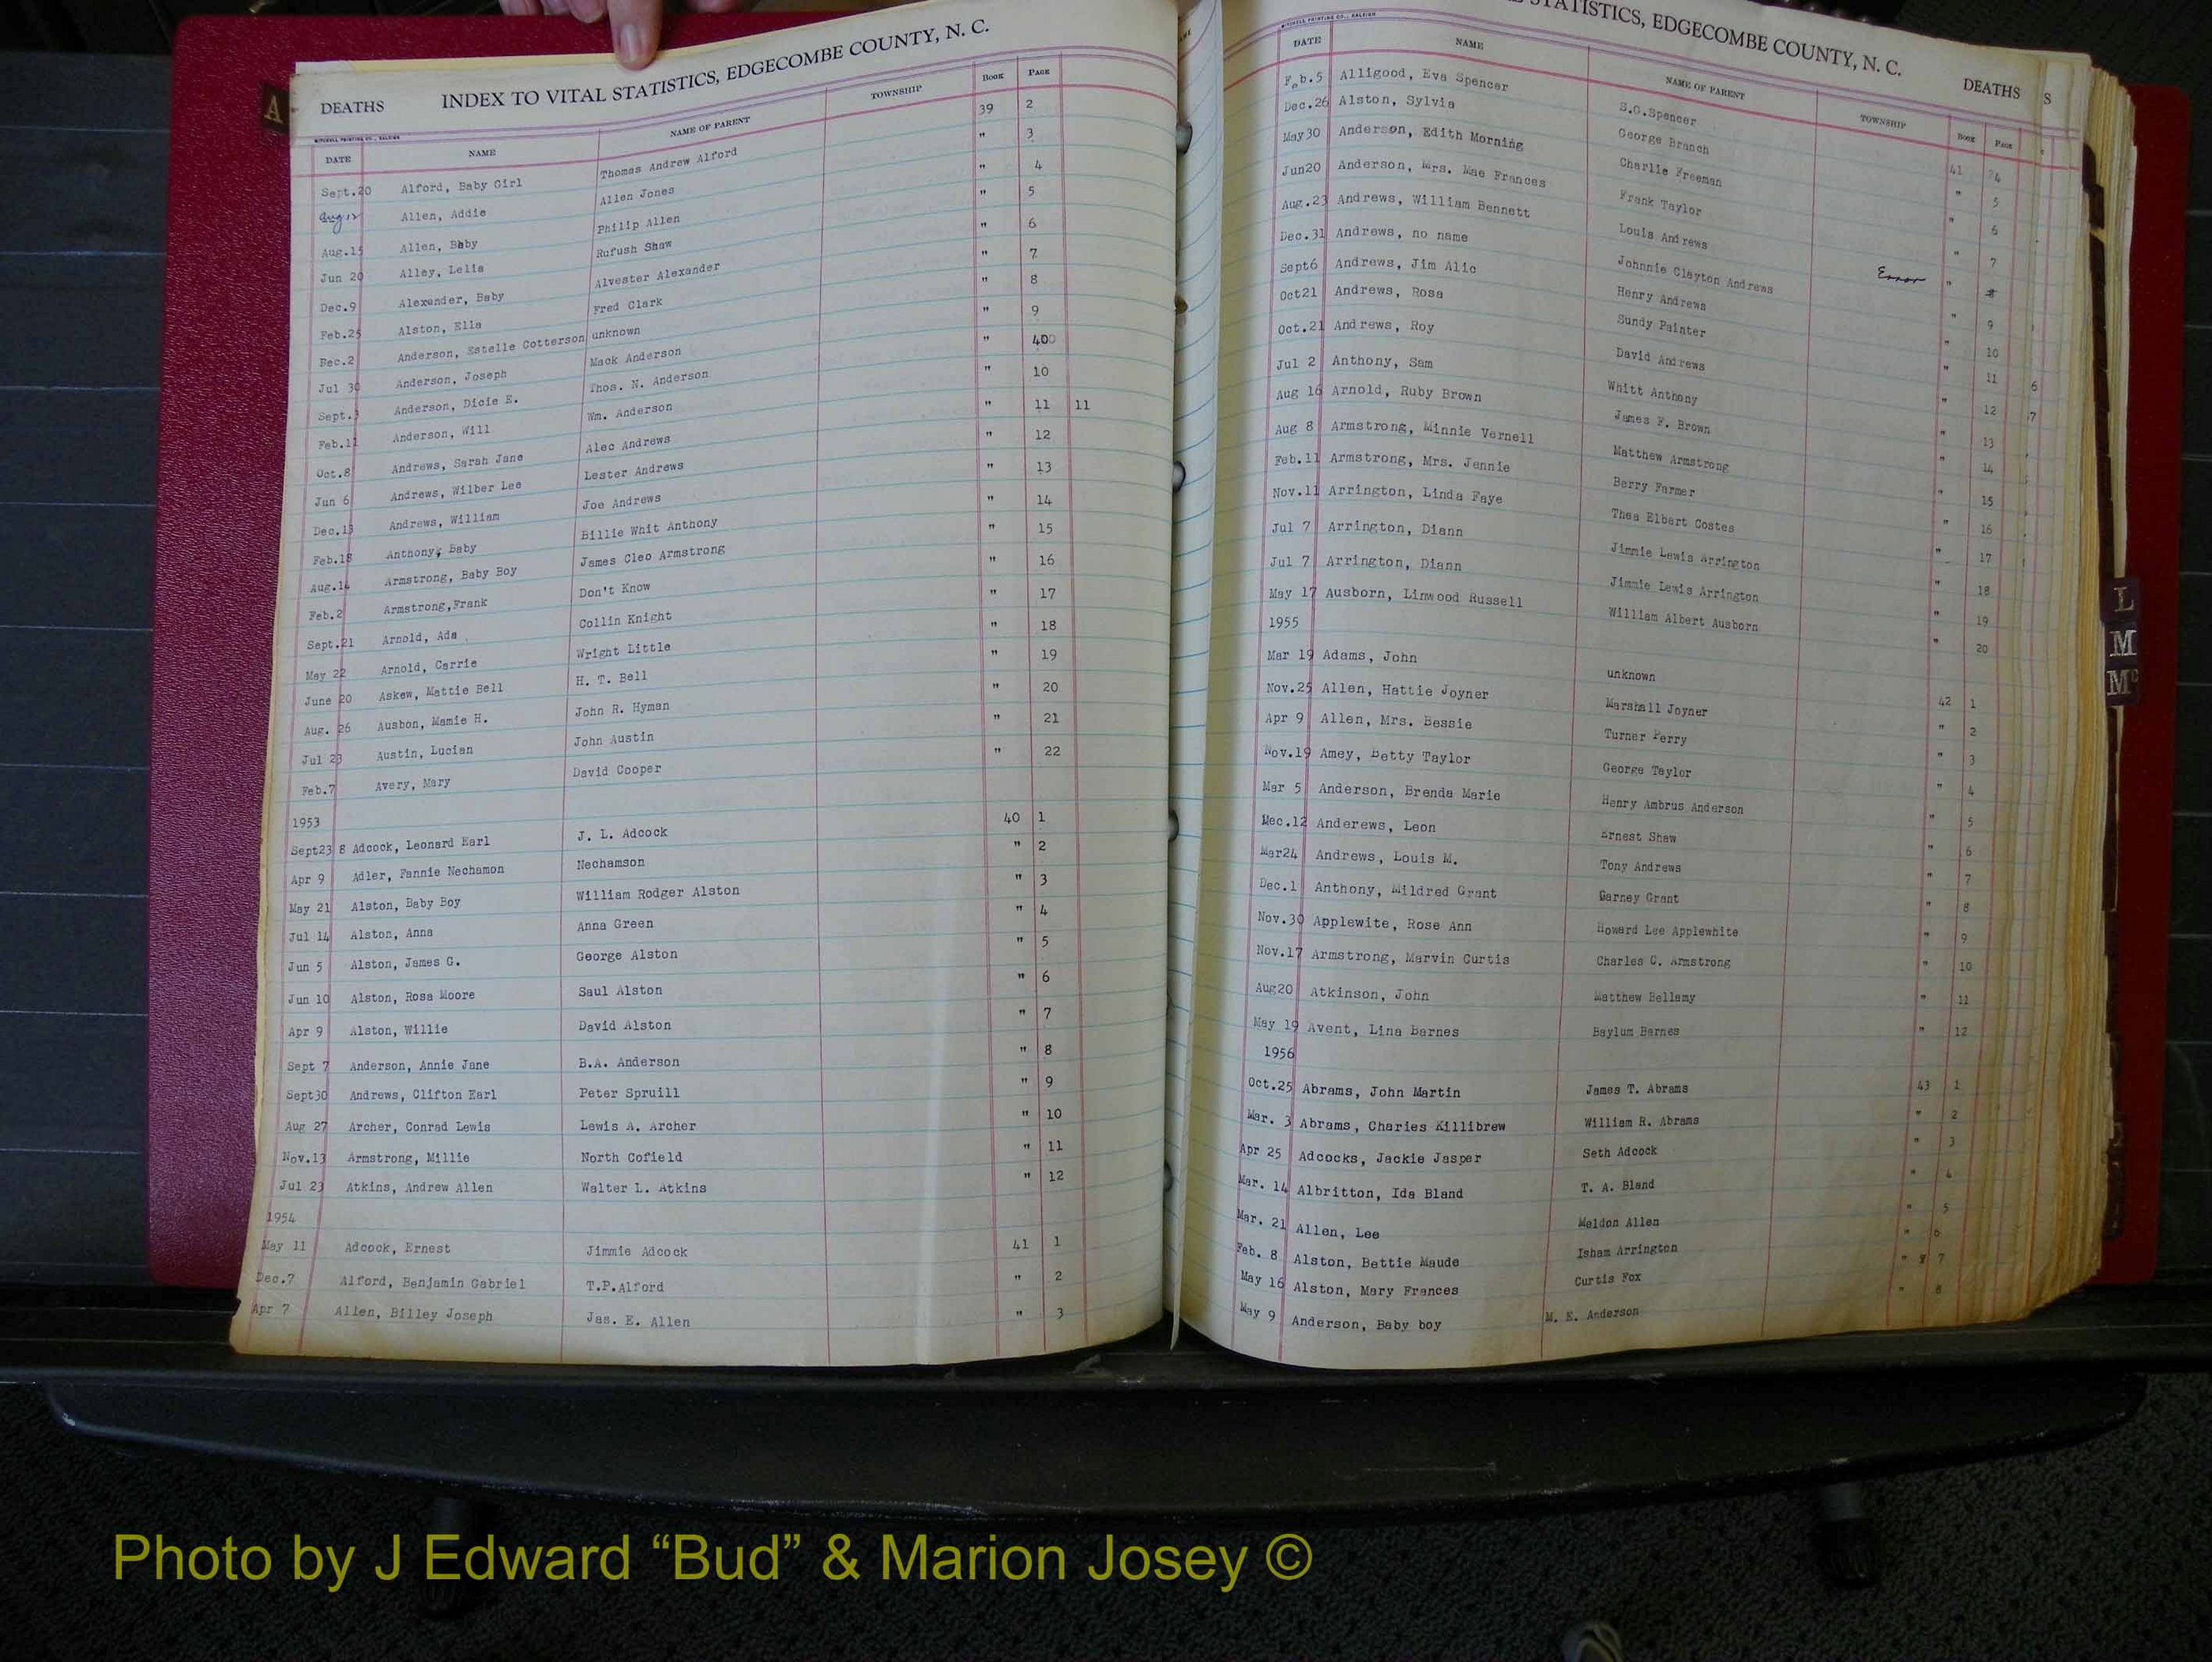 A
DEATHS INDEX TO VITAL STATISTICS, EDGECOMBE COUNTY, N. C.
MITCHELL PRINTING CO., RALEIGH
DATE NAME NAME OF PARENT TOWNSHIP BOOK PAGE
Sept.20 Alford, Baby Girl Thomas Andrew Alford 39 2
Aug 12 Allen, Addie Allen Jones " 3
Aug.15 Allen, Baby Philip Allen " 4
Jun 20 Alley, Lelia Rufush Shaw " 5
Dec.9 Alexander, Baby Alvester Alexander " 6
Feb.25 Alston, Ella Fred Clark " 7
Dec.2 Anderson, Estelle Cotterson unknown " 8
Jul 30 Anderson, Joseph Mack Anderson " 9
Sept.3 Anderson, Dicie E. Thos. N. Anderson " 400
Feb.11 Anderson, Will Wm. Anderson " 10
Oct.8 Andrews, Sarah Jane Alec Andrews " 11 11
Jun 6 Andrews, Wilber Lee Lester Andrews " 12
Dec.13 Andrews, William Joe Andrews " 13
Feb.18 Anthony, Baby Billie Whit Anthony " 14
Aug.14 Armstrong, Baby Boy James Cleo Armstrong " 15
Feb.2 Armstrong,Frank Don't Know " 16
Sept.21 Arnold, Ada Collin Knight " 17
May 22 Arnold, Carrie Wright Little " 18
June 20 Askew, Mattie Bell H. T. Bell " 19
Aug. 26 Ausbon, Mamie H. John R. Hyman " 20
Jul 23 Austin, Lucian John Austin " 21
Feb.7 Avery, Mary David Cooper " 22
1953
Sept23 8 Adcock, Leonard Earl J. L. Adcock 40 1
Apr 9 Adler, Fannie Nechamon Nechamson " 2
May 21 Alston, Baby Boy William Rodger Alston " 3
Jul 14 Alston, Anna Anna Green " 4
Jun 5 Alston, James G. George Alston " 5
Jun 10 Alston, Rosa Moore Saul Alston " 6
Apr 9 Alston, Willie David Alston " 7
Sept 7 Anderson, Annie Jane B.A. Anderson " 8
Sept30 Andrews, Clifton Earl Peter Spruill " 9
Aug 27 Archer, Conrad Lewis Lewis A. Archer " 10
Nov.13 Armstrong, Millie North Cofield " 11
Jul 23 Atkins, Andrew Allen Walter L. Atkins " 12
1954
May 11 Adcock, Ernest Jimmie Adcock 41 1
Dec.7 Alford, Benjamin Gabriel T.P.Alford " 2
Apr 7 Allen, Billey Joseph Jas. E. Allen " 3
STATISTICS, EDGECOMBE COUNTY, N. C. DEATHS S
MITCHELL PRINTING CO., RALEIGH
DATE NAME NAME OF PARENT TOWNSHIP BOOK PAGE
Feb.5 Alligood, Eva Spencer S.G.Spencer 41 4
Dec.26 Alston, Sylvia George Branch " 5
May30 Anderson, Edith Morning Charlie Freeman " 6
Jun20 Anderson, Mrs. Mae Frances Frank Taylor " 7
Aug.23 Andrews, William Bennett Louis Andrews Error " 8
Dec.31 Andrews, no name Johnnie Clayton Andrews " 9
Sept6 Andrews, Jim Alic Henry Andrews " 10
Oct21 Andrews, Rosa Sundy Painter " 11 6
Oct.21 Andrews, Roy David Andrews " 12 7
Jul 2 Anthony, Sam Whitt Anthony " 13
Aug 16 Arnold, Ruby Brown James F. Brown " 14
Aug 8 Armstrong, Minnie Vernell Matthew Armstrong " 15
Feb.11 Armstrong, Mrs. Jennie Berry Farmer " 16
Nov.11 Arrington, Linda Faye Thea Elbert Costes " 17
Jul 7 Arrington, Diann Jimmie Lewis Arrington " 18
Jul 7 Arrington, Diann Jimmie Lewis Arrington " 19
May 17 Ausborn, Linwood Russell William Albert Ausborn " 20
1955
Mar 19 Adams, John unknown 42 1
Nov.25 Allen, Hattie Joyner Marshall Joyner " 2
Apr 9 Allen, Mrs. Bessie Turner Perry " 3
Nov.19 Amey, Betty Taylor George Taylor " 4
Mar 5 Anderson, Brenda Marie Henry Ambrus Anderson " 5
Dec.12 Anderews, Leon Ernest Shaw " 6
Mar24 Andrews, Louis M. Tony Andrews " 7
Dec.1 Anthony, Mildred Grant Garney Grant " 8
Nov.30 Applewite, Rose Ann Howard Lee Applewhite " 9
Nov.17 Armstrong, Marvin Curtis Charles C. Armstrong " 10
Aug20 Atkinson, John Matthew Bellamy " 11
May 19 Avent, Lina Barnes Baylum Barnes " 12
1956
Oct.25 Abrams, John Martin James T. Abrams 43 1
Mar. 3 Abrams, Charies Killibrew William R. Abrams " 2
Apr 25 Adcocks, Jackie Jasper Seth Adcock " 3
Mar. 14 Albritton, Ida Bland T. A. Bland " 4
Mar. 21 Allen, Lee Weldon Allen " 5
Feb. 8 Alston, Bettie Maude Isham Arrington " 6
May 16 Alston, Mary Frances Curtis Fox " 7
May 9 Anderson, Baby boy M. E. Anderson " 8
L
M
Mc
Photo by J Edward “Bud” & Marion Josey ©